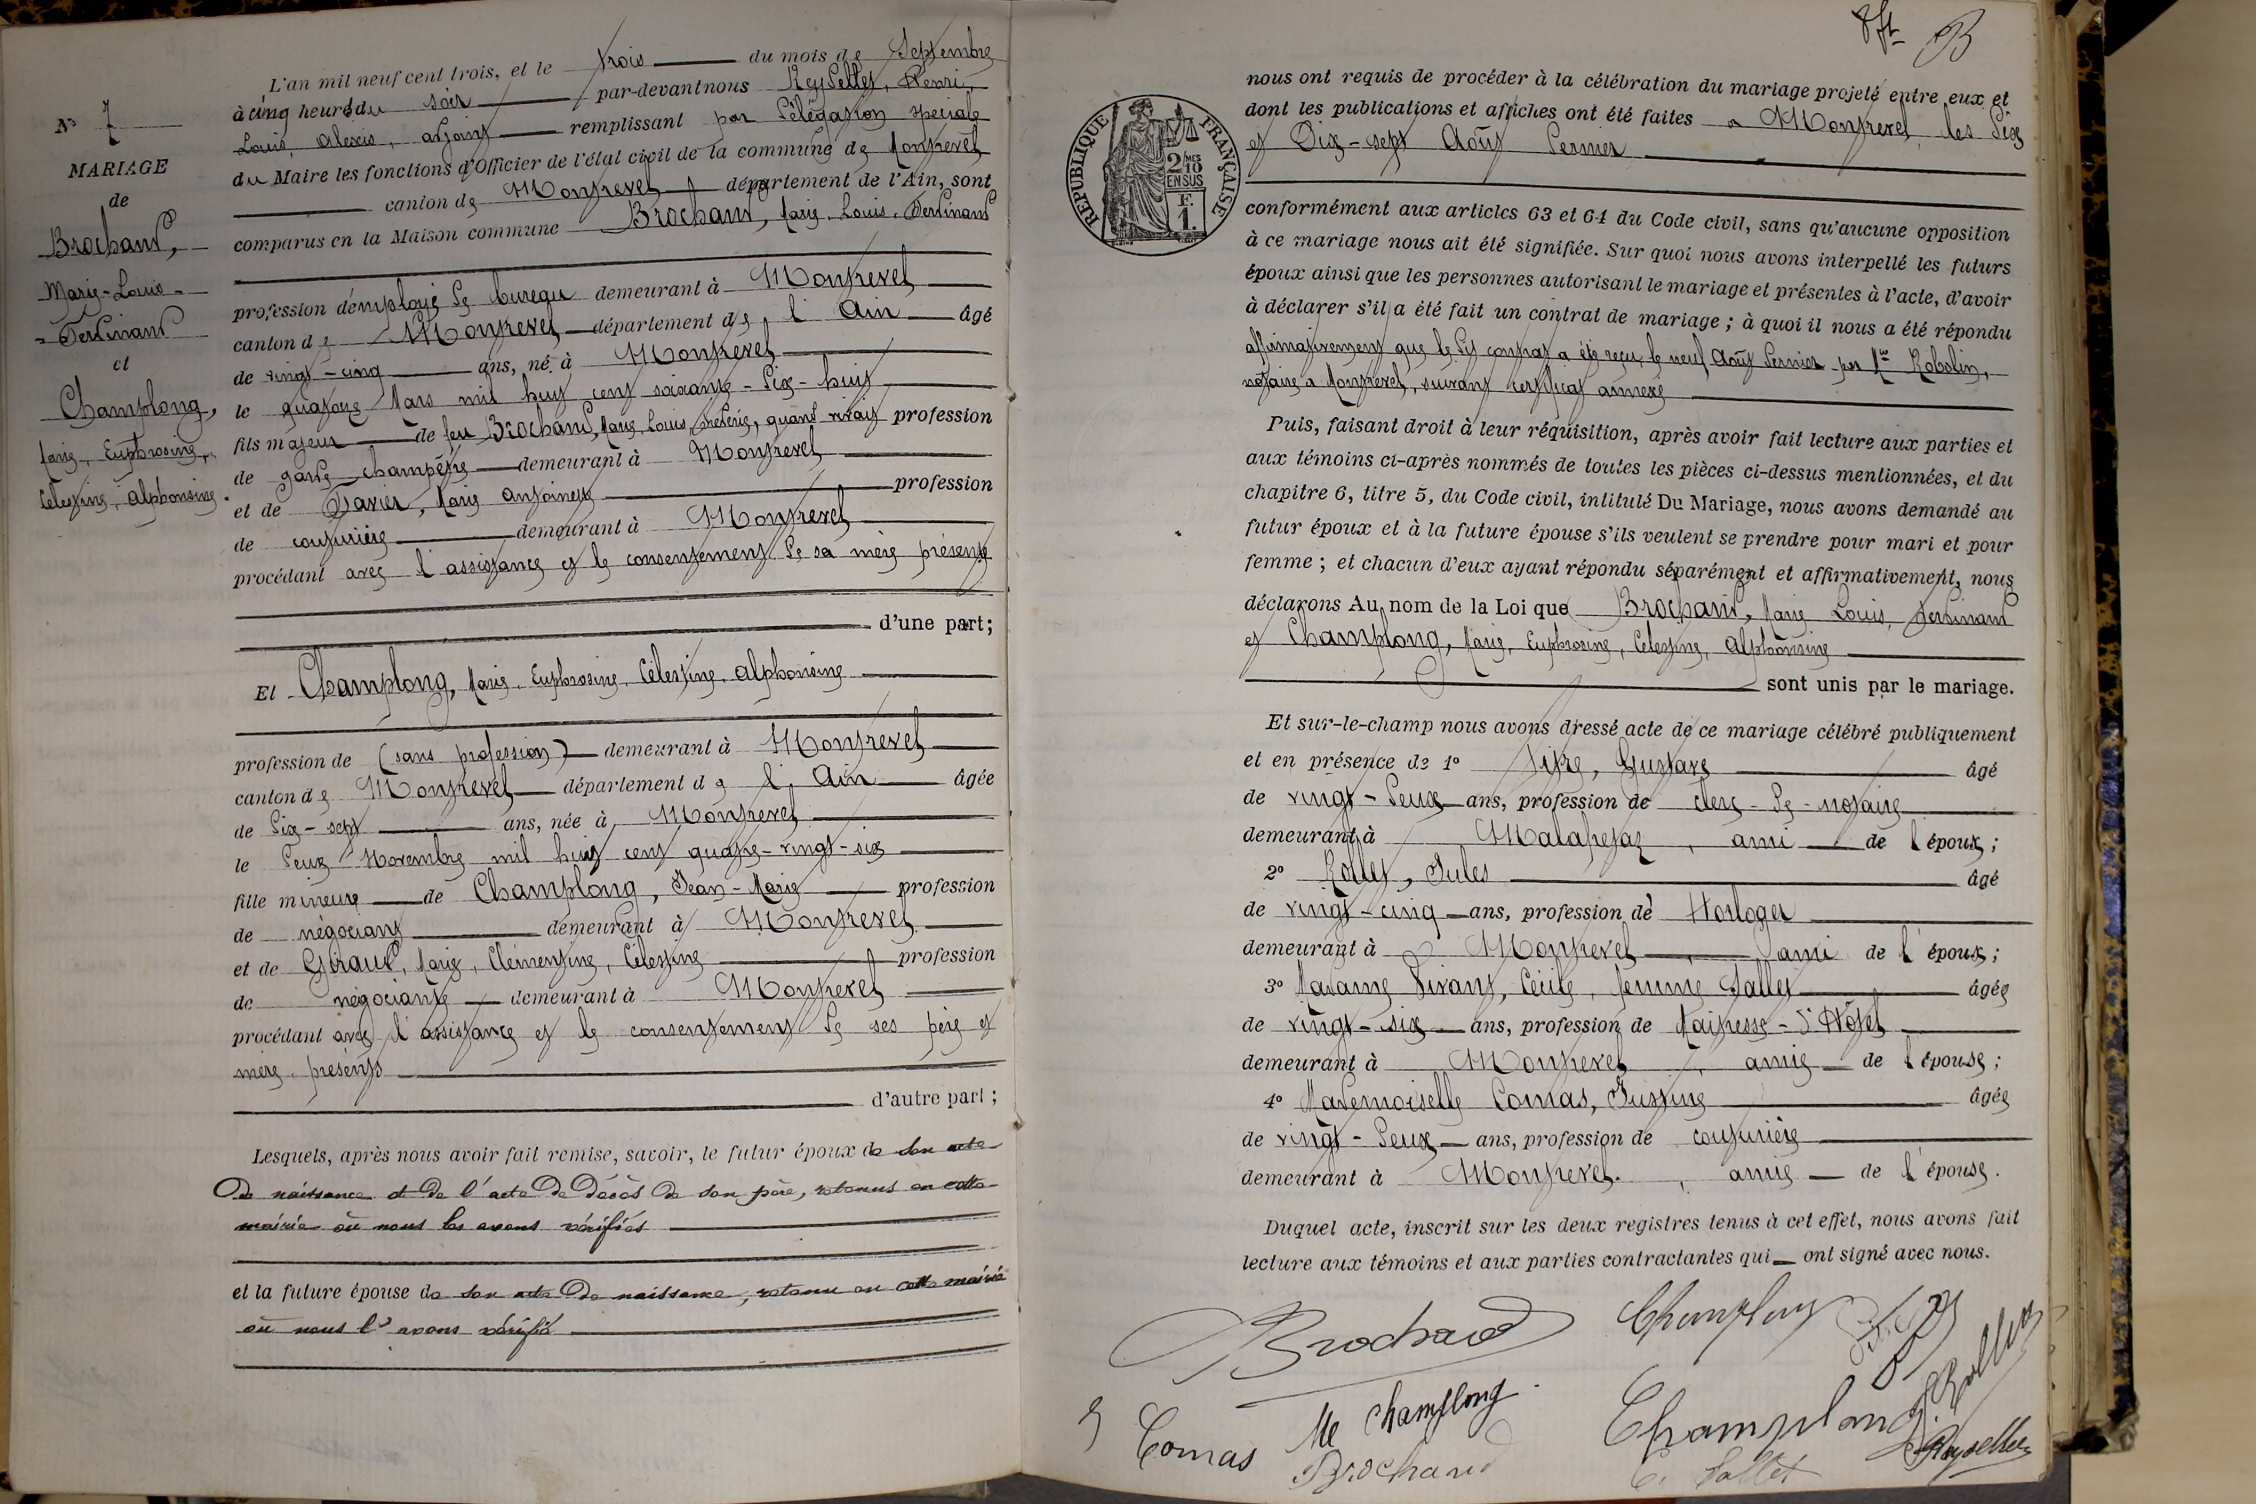 L'an mil neuf cent trois, et le trois du mois de Septembre
à cinq heures du soir par-devant nous Reyssellet, Henri,
Louis, Alexis, adjoint remplissant par Délégation spéciale
du Maire les fonctions d'Officier de l'état civil de la commune de Montrevel
canton de Montrevel département de l'Ain, sont
comparus en la Maison commune Brochand, Marie, Louis, Ferdinand
profession d'employé de bureau demeurant à Montrevel
canton de Montrevel département de l'Ain âgé
de vingt-cinq ans, né à Montrevel
le quatorze Mars mil huit cent soixante-dix-huit
fils majeur de feu Brochand, Marie, Louis, Frédéric, quand vivait profession
de garde champêtre demeurant à Montrevel
et de Davier, Marie Antoinette profession
de couturière demeurant à Montrevel
procédant avec l'assistance et le consentement de sa mère présente
d'une part;
Et Champlong, Marie, Euphrosine, Célestine, Alphonsine
profession de (sans profession) demeurant à Montrevel
canton de Montrevel département de l'Ain âgée
de dix-sept ans, née à Montrevel
le deux Novembre mil huit cent quatre-vingt-six
fille mineure de Champlong, Jean-Marie profession
de négociant demeurant à Montrevel
et de Giraud, Marie, Clémentine, Célestine profession
de négociante demeurant à Montrevel
procédant avec l'assistance et le consentement de ses père et
mère présents
d'autre part;
Lesquels, après nous avoir fait remise, savoir, le futur époux de son acte
de naissance et de l'acte de décès de son père, retenus en cette
mairie où nous les avons vérifiés
et la future épouse de son acte de naissance, retenu en cette mairie
où nous l'avons vérifié
N° 7
MARIAGE
de
Brochand,
Marie-Louis-
-Ferdinand
et
Champlong,
Marie, Euphrosine,
Célestine, Alphonsine.
B
RÉPUBLIQUE FRANÇAISE
2/10MES
EN SUS
F.
1.
nous ont requis de procéder à la célébration du mariage projeté entre eux et
dont les publications et affiches ont été faites à Montrevel les dix
et Dix-sept Août dernier
conformément aux articles 63 et 64 du Code civil, sans qu'aucune opposition
à ce mariage nous ait été signifiée. Sur quoi nous avons interpellé les futurs
époux ainsi que les personnes autorisant le mariage et présentes à l'acte, d'avoir
à déclarer s'il a été fait un contrat de mariage; à quoi il nous a été répondu
affirmativement que le dit contrat a été reçu le neuf Août dernier par Me Robelin,
notaire à Montrevel, suivant certificat annexé
Puis, faisant droit à leur réquisition, après avoir fait lecture aux parties et
aux témoins ci-après nommés de toutes les pièces ci-dessus mentionnées, et du
chapitre 6, titre 5, du Code civil, intitulé Du Mariage, nous avons demandé au
futur époux et à la future épouse s'ils veulent se prendre pour mari et pour
femme; et chacun d'eux ayant répondu séparément et affirmativement, nous
déclarons Au nom de la Loi que Brochand, Marie Louis, Ferdinand
et Champlong, Marie, Euphrosine, Célestine, Alphonsine
sont unis par le mariage.
Et sur-le-champ nous avons dressé acte de ce mariage célébré publiquement
et en présence de 1° Titre, Gustave âgé
de vingt-deux ans, profession de clerc-de-notaire
demeurant à Malafretaz, ami de l'époux;
2° Rollet, Jules âgé
de vingt-cinq ans, profession de Horloger
demeurant à Montrevel, ami de l'époux;
3° Madame Vivant, Cécile, femme Sallet âgée
de vingt-six ans, profession de Maîtresse-d'Hôtel
demeurant à Montrevel, amie de l'épouse;
4° Mademoiselle Comas, Justine âgée
de vingt-deux ans, profession de couturière
demeurant à Montrevel, amie de l'épouse.
Duquel acte, inscrit sur les deux registres tenus à cet effet, nous avons fait
lecture aux témoins et aux parties contractantes qui ont signé avec nous.
Brochand Champlong
J. Rollet
Comas Me Champlong Champlong
Brochand C. Sallet Reyssellet